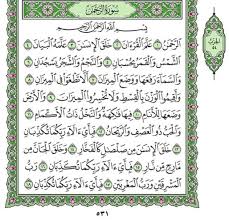 سُورَةُ الرَّحْمَٰن
بِسْمِ اللَّهِ الرَّحْمَٰنِ الرَّحِيمِ
الرَّحْمَٰنُ ١ عَلَّمَ الْقُرْآنَ ٢ خَلَقَ الْإِنسَانَ ٣ عَلَّمَهُ الْبَيَانَ ٤
الشَّمْسُ وَالْقَمَرُ بِحُسْبَانٍ ٥ وَالنَّجْمُ وَالشَّجَرُ يَسْجُدَانِ ٦
وَالسَّمَاءَ رَفَعَهَا وَوَضَعَ الْمِيزَانَ ٧ أَلَّا تَطْغَوْا فِي الْمِيزَانِ ٨
وَأَقِيمُوا الْوَزْنَ بِالْقِسْطِ وَلَا تُخْسِرُوا الْمِيزَانَ ٩ وَالْأَرْضَ
وَضَعَهَا لِلْأَنَامِ ١٠ فِيهَا فَاكِهَةٌ وَالنَّخْلُ ذَاتُ الْأَكْمَامِ ١١
وَالْحَبُّ ذُو الْعَصْفِ وَالرَّيْحَانُ ١٢ فَبِأَيِّ آلَاءِ رَبِّكُمَا تُكَذِّبَانِ ١٣
خَلَقَ الْإِنسَانَ مِن صَلْصَالٍ كَالْفَخَّارِ ١٤ وَخَلَقَ الْجَانَّ مِن
مَّارِجٍ مِّن نَّارٍ ١٥ فَبِأَيِّ آلَاءِ رَبِّكُمَا تُكَذِّبَانِ ١٦ رَبُّ
الْمَشْرِقَيْنِ وَرَبُّ الْمَغْرِبَيْنِ ١٧ فَبِأَيِّ آلَاءِ رَبِّكُمَا تُكَذِّبَانِ ١٨
٥٣١